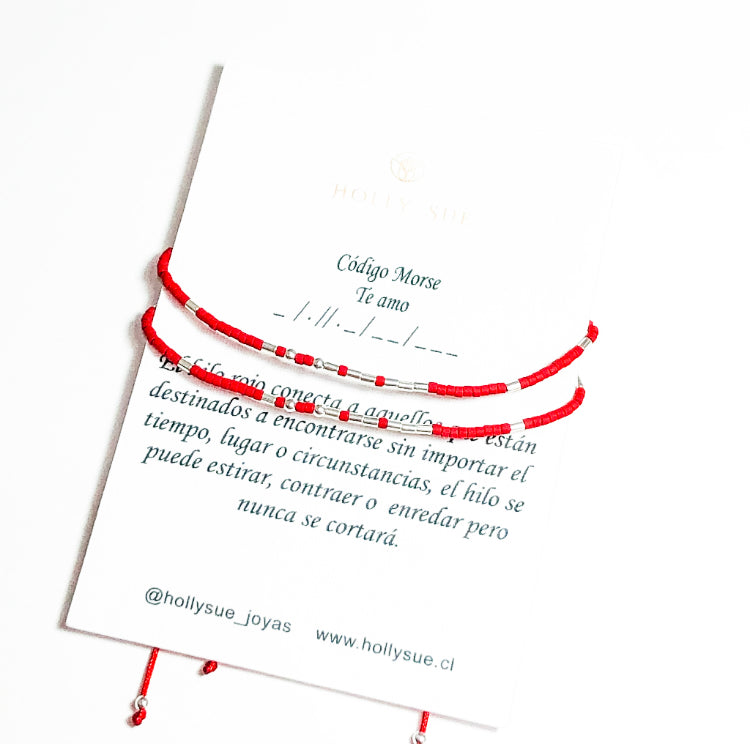 HOLLY SUE
Código Morse
Te amo
_ /. //. _/_ _/_ _ _
El hilo rojo conecta a aquellos que están
destinados a encontrarse sin importar el
tiempo, lugar o circunstancias, el hilo se
puede estirar, contraer o enredar pero
nunca se cortará.
@hollysue_joyas www.hollysue.cl